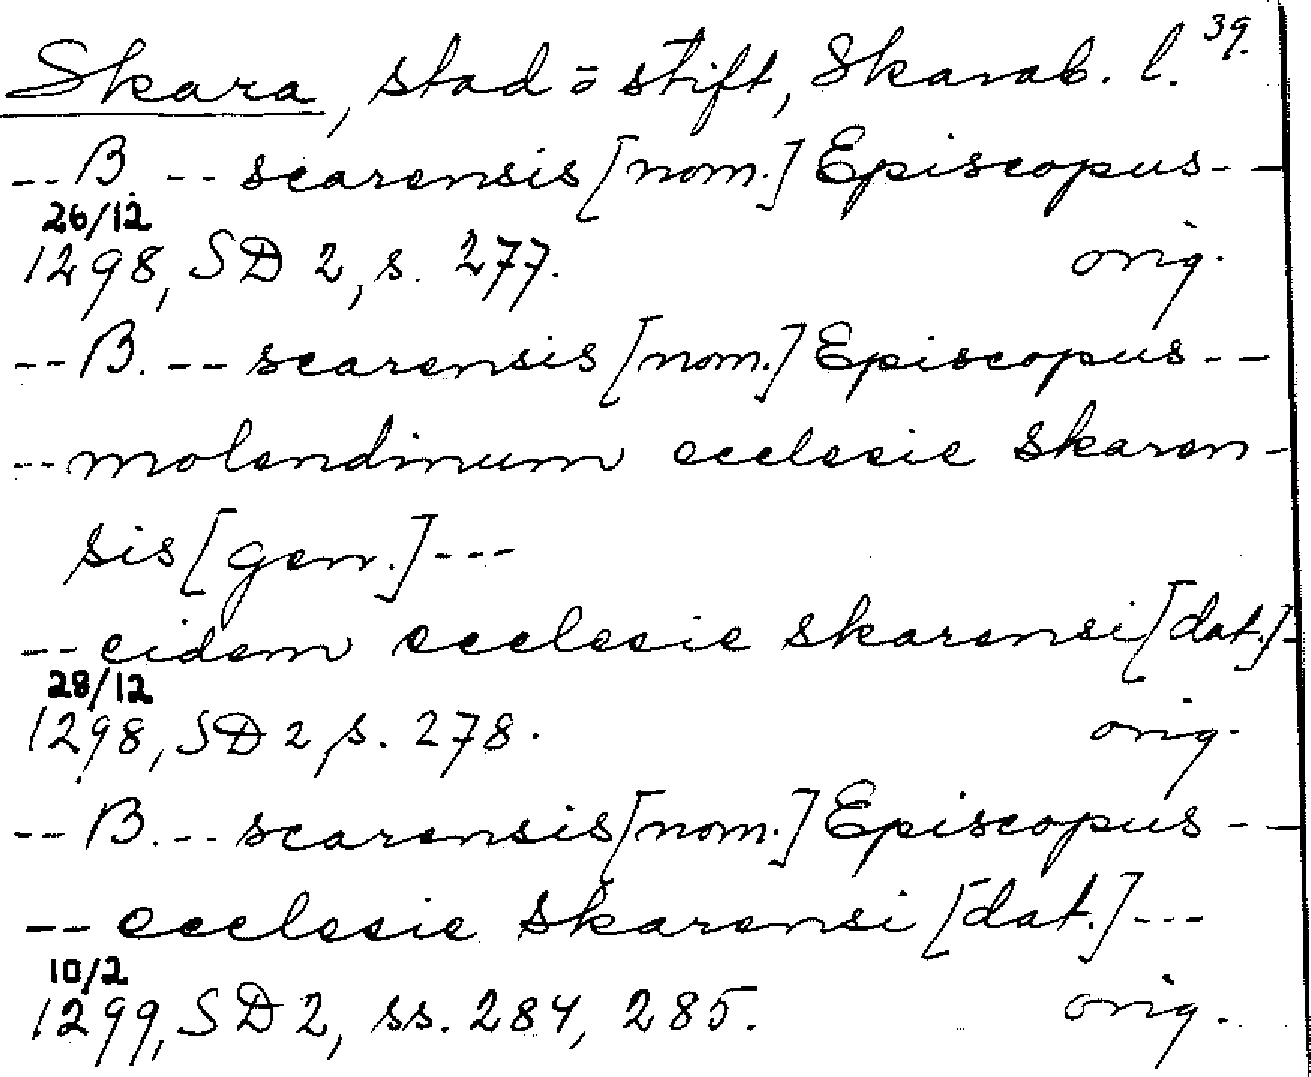 39.
Skara, stad = stift, Skarab. l.
-- B. -- scarensis [nom.] Episcopus --
26/12
1298, SD 2, s. 277. orig.
-- B. -- scarensis [nom.] Episcopus --
-- molendinum ecclesie skaren-
sis [gen.] ---
-- eidem ecclesie skarensi [dat.] -
28/12
1298, SD 2, s. 278. orig.
-- B. -- scarensis [nom.] Episcopus --
-- ecclesie skarensi [dat.] ---
10/2
1299, SD 2, ss. 284, 285. orig.